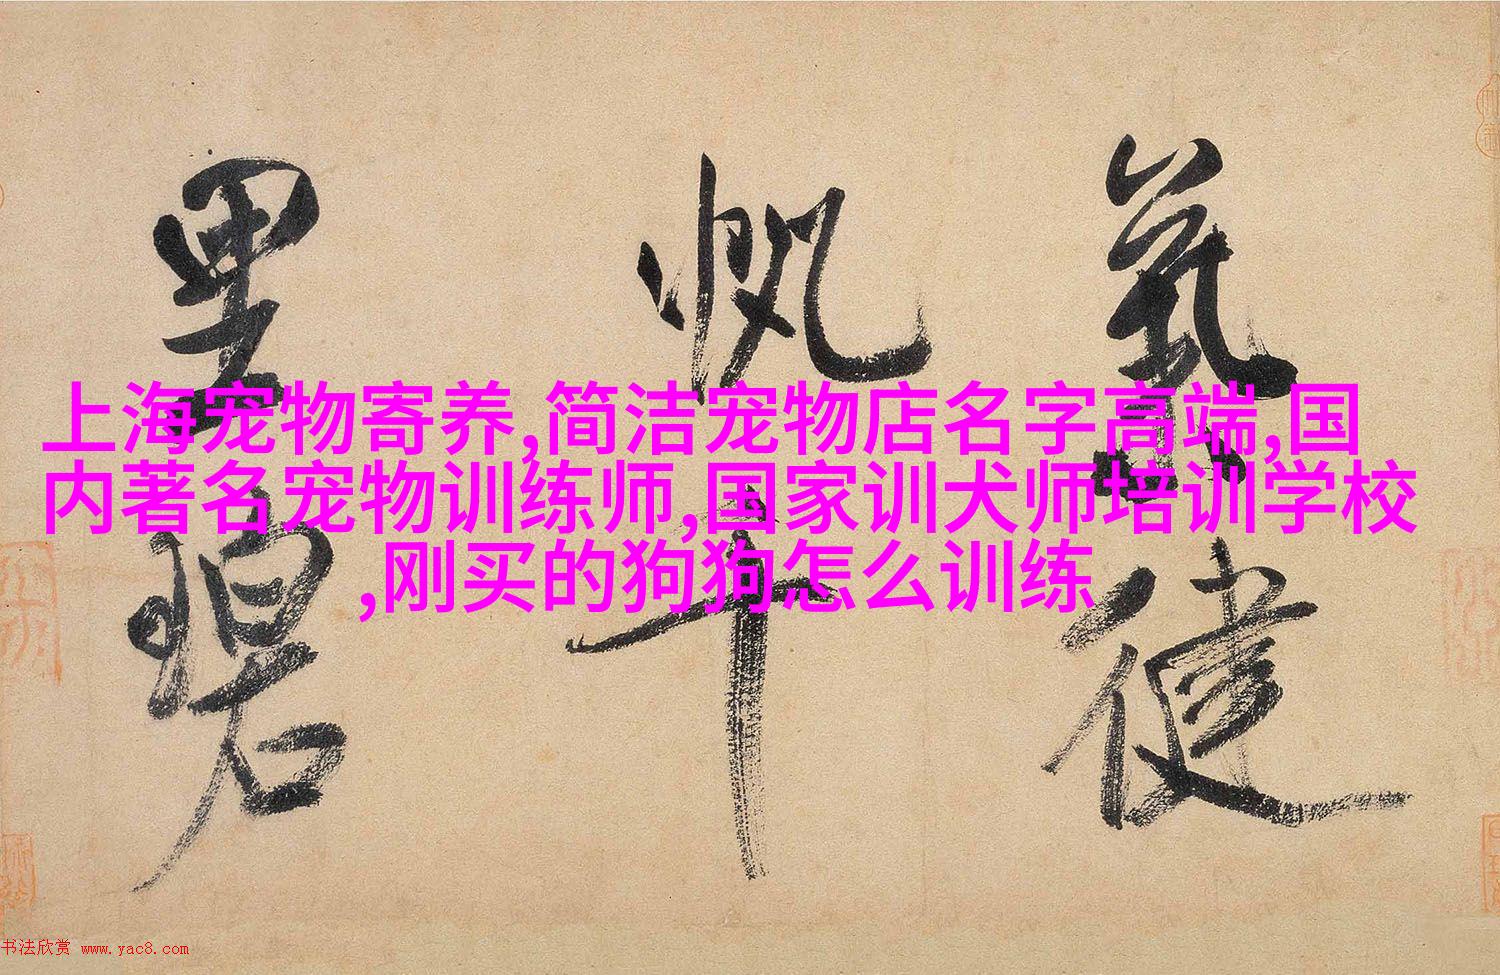 氣健
帆千
里碧
上海宠物寄养,简洁宠物店名字高端,国
内著名宠物训练师,国家训犬师培训学校
,刚买的狗狗怎么训练
书法欣赏 www.yac8.com